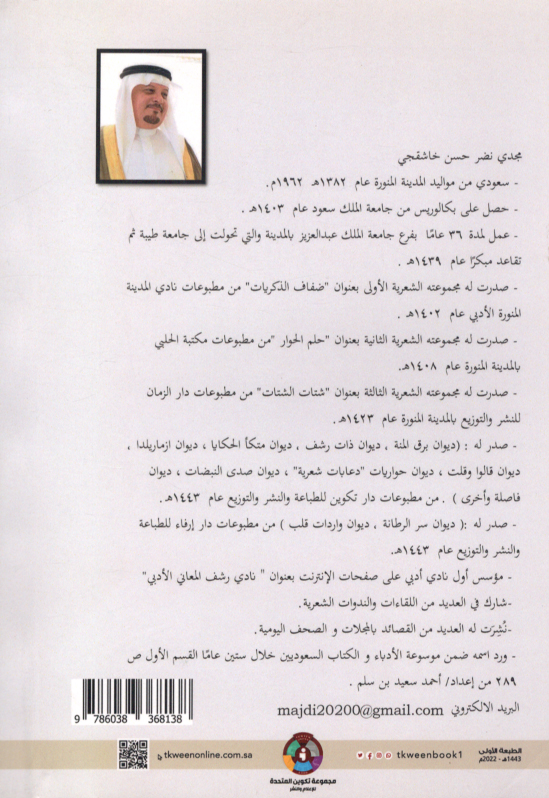 مجدي نضر حسن خاشقجي
- سعودي من مواليد المدينة المنورة عام ١٣٨٢هـ ١٩٦٢م.
- حصل على بكالوريس من جامعة الملك سعود عام ١٤٠٣هـ .
- عمل لمدة ٣٦ عامًا بفرع جامعة الملك عبدالعزيز بالمدينة والتي تحولت إلى جامعة طيبة ثم
تقاعد مبكرًا عام ١٤٣٩هـ .
- صدرت له مجموعته الشعرية الأولى بعنوان "ضفاف الذكريات" من مطبوعات نادي المدينة
المنورة الأدبي عام ١٤٠٢هـ .
- صدرت له مجموعته الشعرية الثانية بعنوان "حلم الحوار "من مطبوعات مكتبة الحلبي
بالمدينة المنورة عام ١٤٠٨هـ.
- صدرت له مجموعته الشعرية الثالثة بعنوان "شتات الشتات" من مطبوعات دار الزمان
للنشر والتوزيع بالمدينة المنورة عام ١٤٢٣هـ.
- صدر له : (ديوان برق المنة , ديوان ذات رشف , ديوان متكأ الحكايا ، ديوان ازماريلدا ,
ديوان قالوا وقلت ، ديوان حواريات "دعابات شعرية" ، ديوان صدى النبضات ، ديوان
فاصلة وأخرى ) . من مطبوعات دار تكوين للطباعة والنشر والتوزيع عام ١٤٤٣هـ .
- صدر له :( ديوان سر الرطانة ، ديوان واردات قلب ) من مطبوعات دار إرفاء للطباعة
والنشر والتوزيع عام ١٤٤٣هـ.
- مؤسس أول نادي أدبي على صفحات الإنترنت بعنوان " نادي رشف المعاني الأدبي"
-شارك في العديد من اللقاءات والندوات الشعرية.
-نُشِرَت له العديد من القصائد بالمجلات و الصحف اليومية.
- ورد اسمه ضمن موسوعة الأدباء و الكتاب السعوديين خلال ستين عامًا القسم الأول ص
٢٨٩ من إعداد/ أحمد سعيد بن سلم .
البريد الالكتروني majdi20200@gmail.com
9 786038 368138
الطبعة الأولى
1443هـ - 2022م
tkweenbook1
tkweenonline.com.sa
مجموعة تكوين المتحدة
للإعلام والنشر